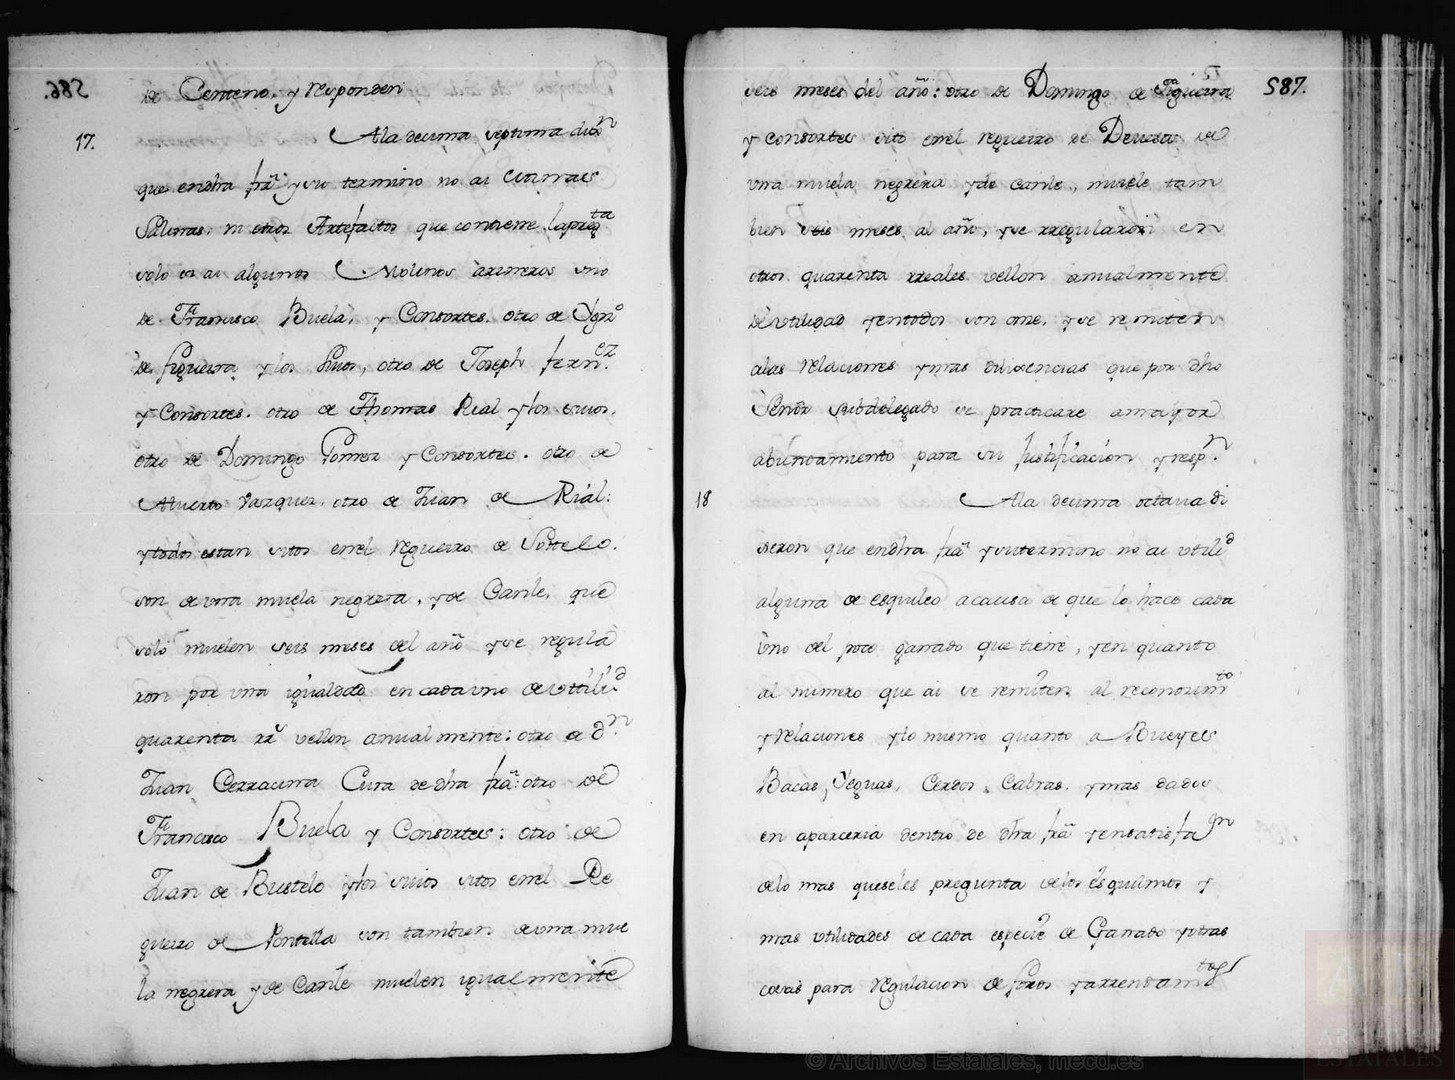 586.
de Centeno. y responden
17.
Ala decima septima dixn
que endha frã. y su termino no ai Minas
Salinas, ni otros Artefactos que contiene la pregta
solo si ai algunos Molinos arineros uno
de Francisco Buela, y Consortes, otro de Ygnº
de figueira y los suios, otro de Joseph fernez.
y Consortes. otro de Thomas Rial y los suios,
otro de Domingo Pomez y Consortes. otro de
Alverto Vazquez. otro de Juan de Rial:
y todos estan sitos enel regueiro de Sestelo.
son de una muela negrera, y de Canle, que
solo muelen seis meses del año y se regula
ron por una igualdad en cada uno de utilid
quarenta rrs vellon anualmente: otro de Dn.
Juan Cerracina Cura de dha frã: otro de
Francisco Buela y Consortes: otro de
Juan de Bustelo y los suios sitos enel Re
gueiro de Pontella son tambien de una mue
la negrera y de Canle muelen igualmente
587.
seis meses del año: otro de Domingo de Figueira
y consortes sito enel regueiro de Devesa de
una muela negrera y de canle, muele tam
bien seis meses al año, y se rregularon en
otros quarenta rreales vellon anualmente
de utilidad y entodos son once, y se remiten
alas relaciones y mas dilixencias que por dho
Señor subdelegado se practicare a mayor
abundamiento para su Justificacion y respn.
18
Ala decima octava di
xeron que endha frã y su termino no ai utilid
alguna de esquileo a causa de que lo hace cada
uno del poco ganado que tiene, y en quanto
al numero que ai se remiten al reconocimto
y relaciones y lo mismo quanto a Bueyes
Bacas, Yeguas, Cerdos, Cabras. y mas dados
en aparceria dentro de dha frã y ensatisfan
delo mas que seles pregunta delos esquilmos y
mas utilidades de cada especie de Ganado y otras
cosas para regulacion de foros y arrendamtos
© Archivos Estatales, mecd.es